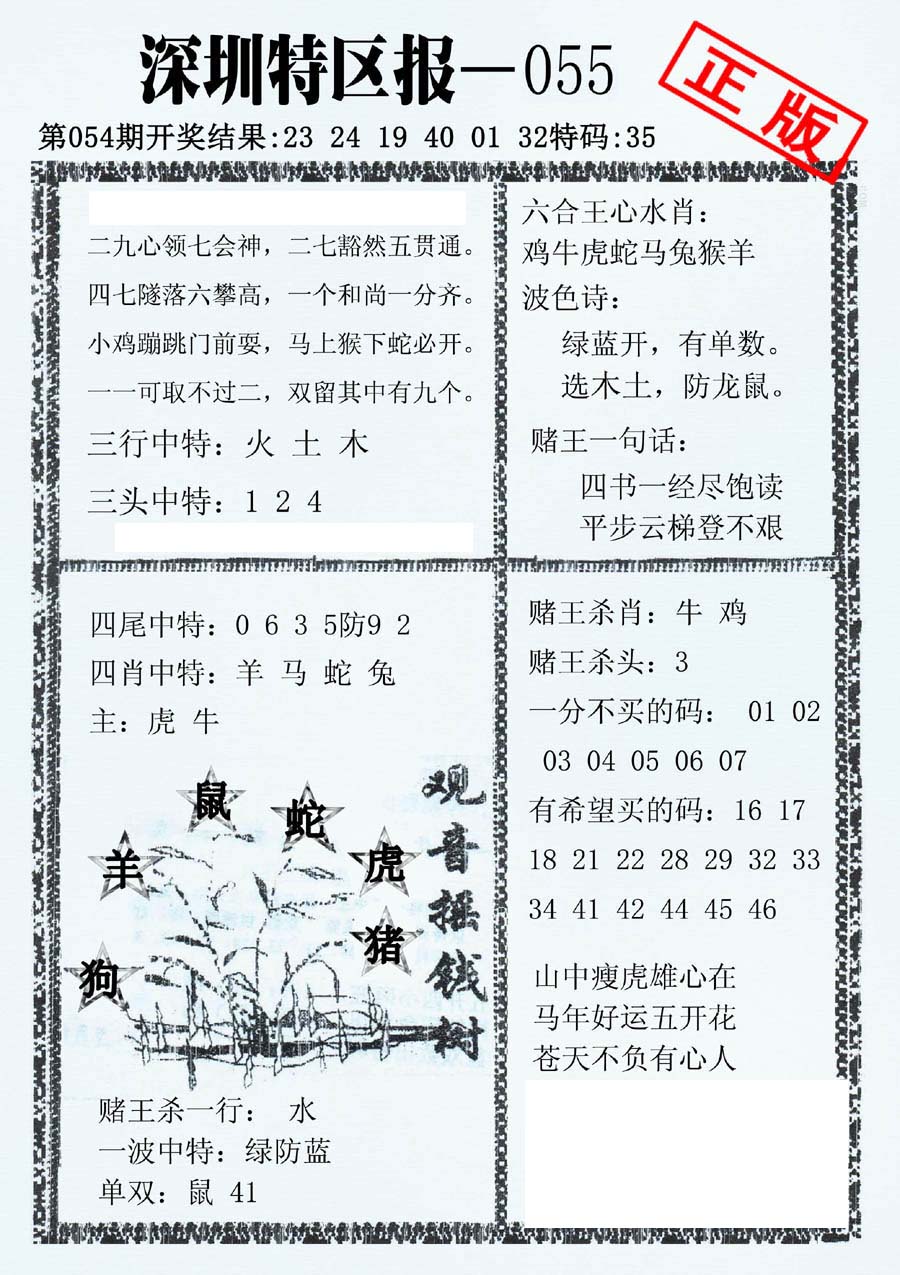 深圳特区报—055
正版
第054期开奖结果:23 24 19 40 01 32特码:35
二九心领七会神，二七豁然五贯通。
四七隧落六攀高，一个和尚一分齐。
小鸡蹦跳门前耍，马上猴下蛇必开。
一一可取不过二，双留其中有九个。
三行中特：火 土 木
三头中特：1 2 4
六合王心水肖：
鸡牛虎蛇马兔猴羊
波色诗：
绿蓝开，有单数。
选木土，防龙鼠。
赌王一句话：
四书一经尽饱读
平步云梯登不艰
四尾中特：0 6 3 5防9 2
四肖中特：羊 马 蛇 兔
主：虎 牛
鼠
蛇
羊
虎
猪
狗
观音摇钱树
赌王杀一行： 水
一波中特：绿防蓝
单双：鼠 41
赌王杀肖：牛 鸡
赌王杀头：3
一分不买的码： 01 02
03 04 05 06 07
有希望买的码：16 17
18 21 22 28 29 32 33
34 41 42 44 45 46
山中瘦虎雄心在
马年好运五开花
苍天不负有心人